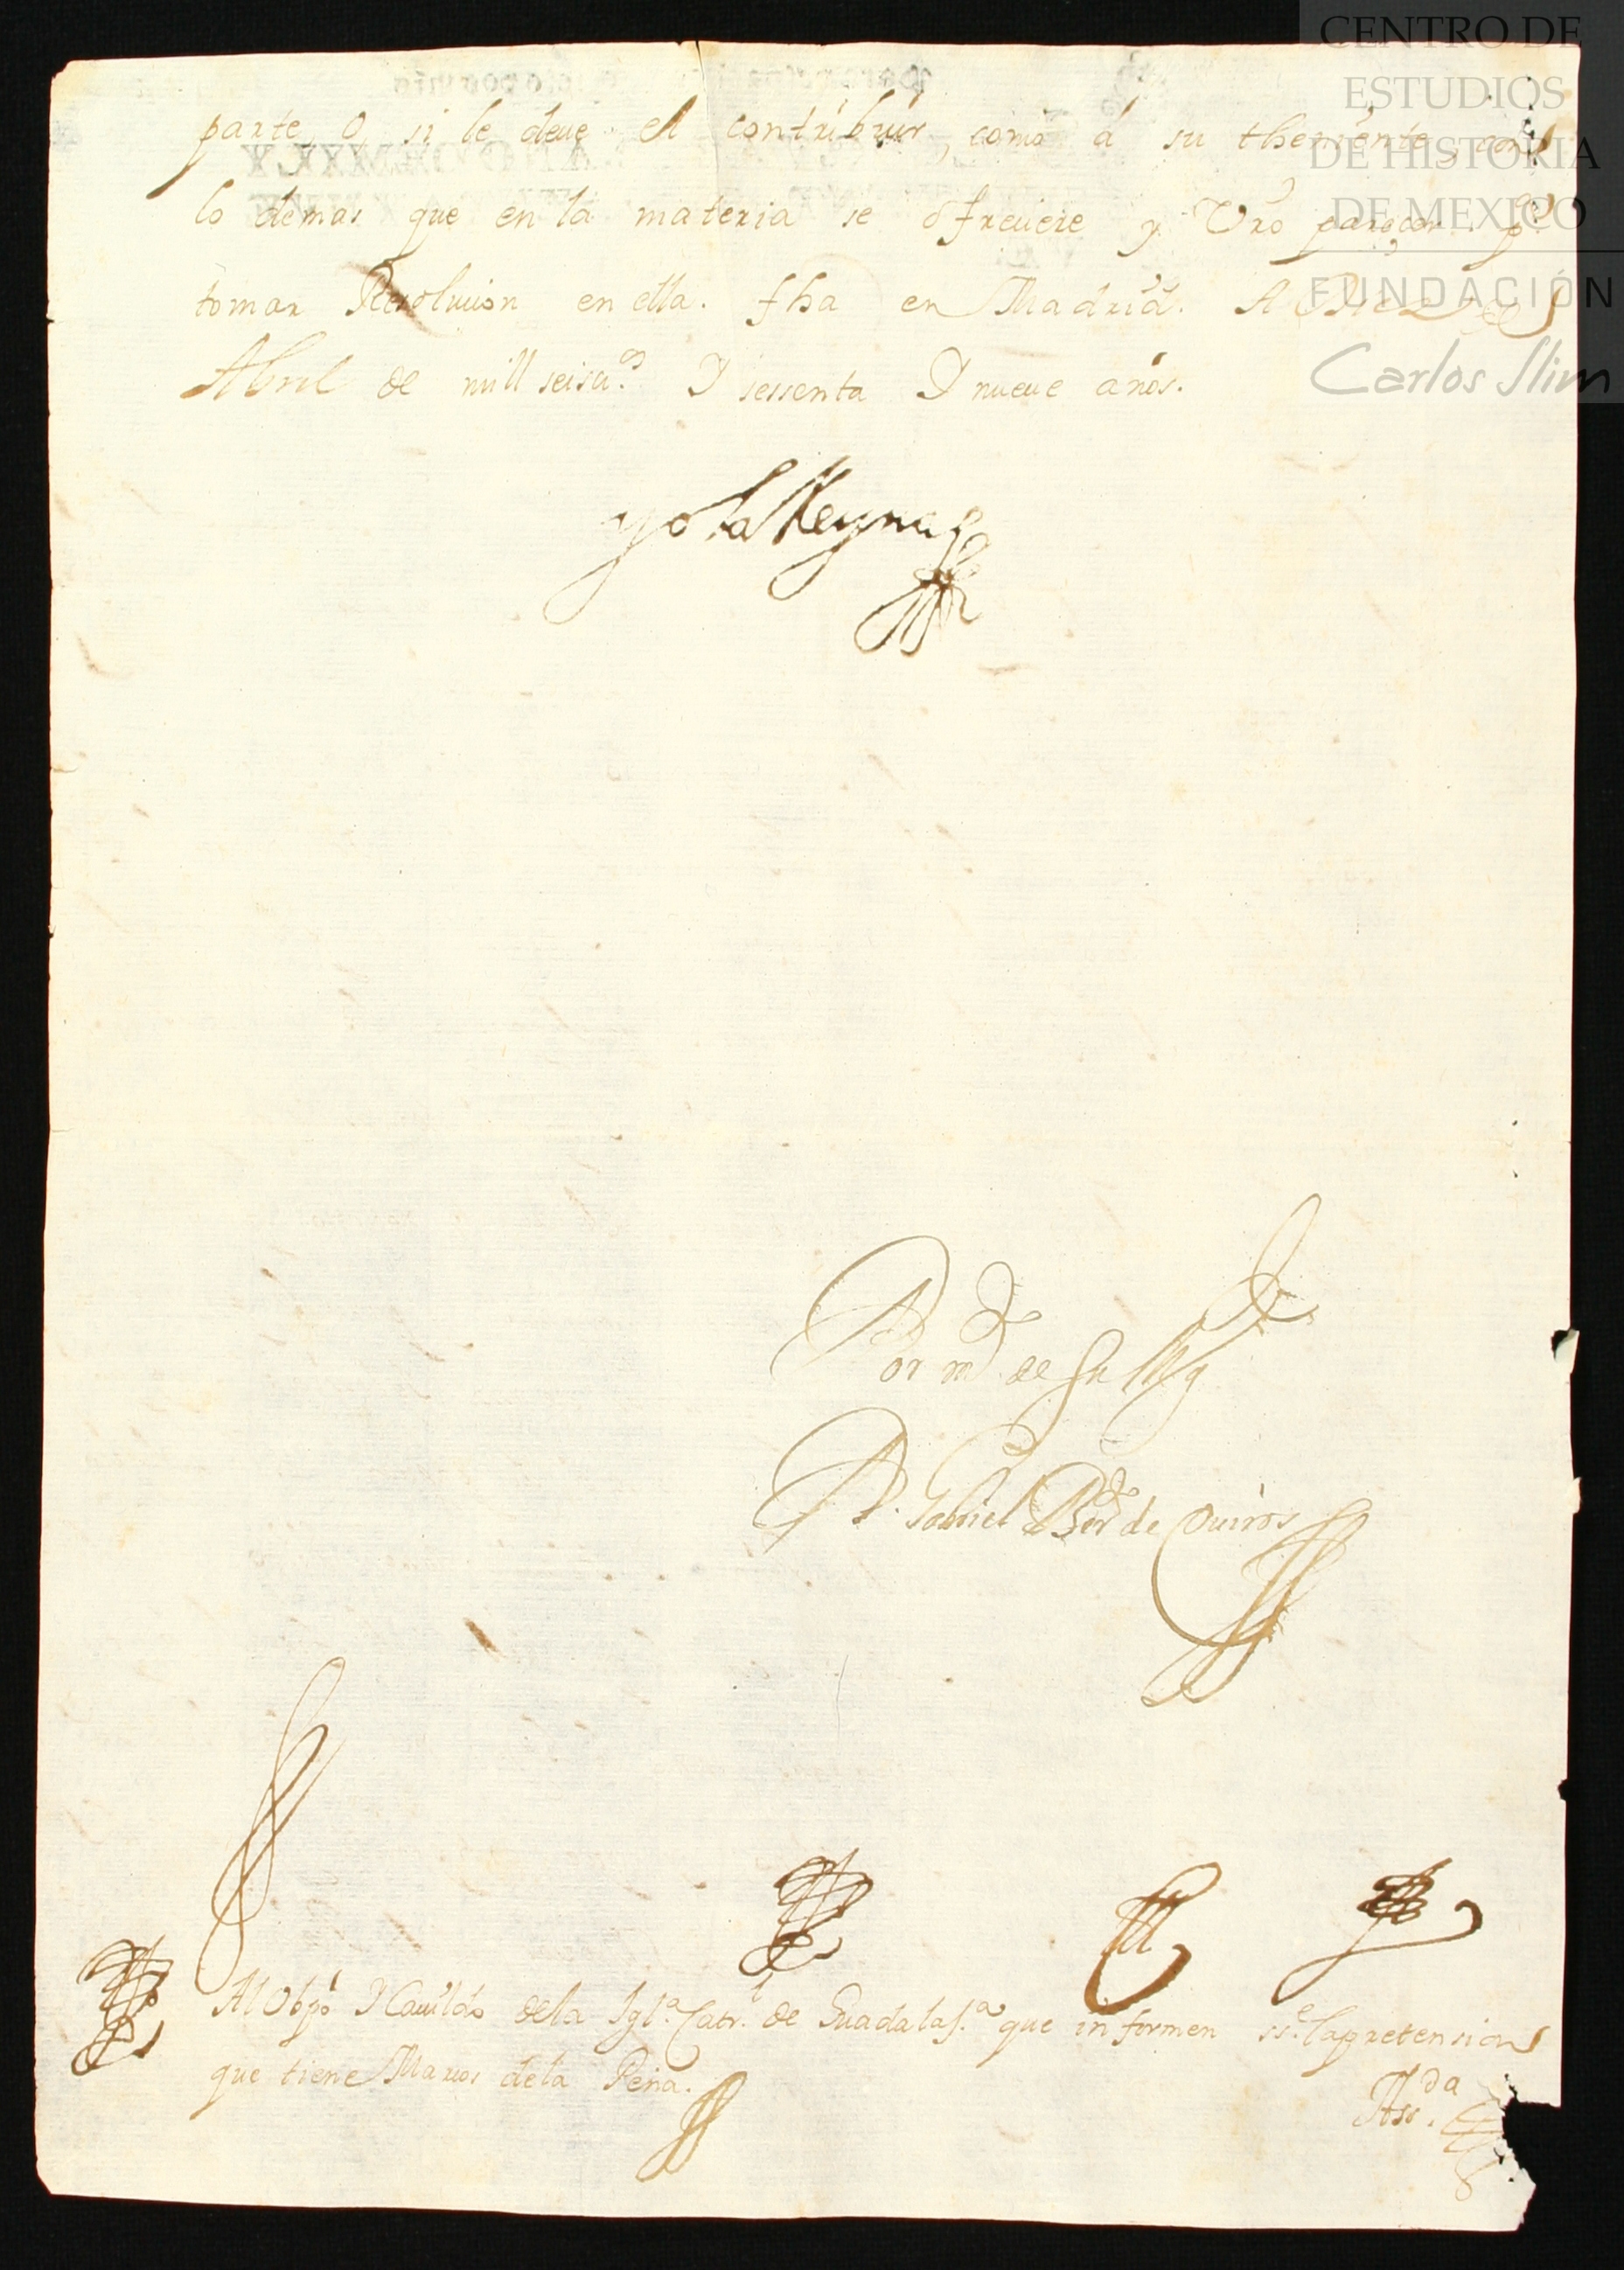 CENTRO DE
ESTUDIOS
DE HISTORIA
DE MEXICO
FUNDACIÓN
Carlos Slim
parte, o, si le deue el contribuir, como á su theniente, con
lo demas que en la materia se ofreciere y Vro parecer pª
tomar Resolucion en ella. fha en Madrid. A Diez de
Abril de mill seisc.os Y sessenta Y nueue años.
yo la Reyna
Por md de Su Mg
D. Gabriel Berdo de Quiros
Al Obpo Y Cauildo de la Igl.a Catr.l de Guadalaj.a que informen ss.e la pretension
que tiene Marcos de la Peña.